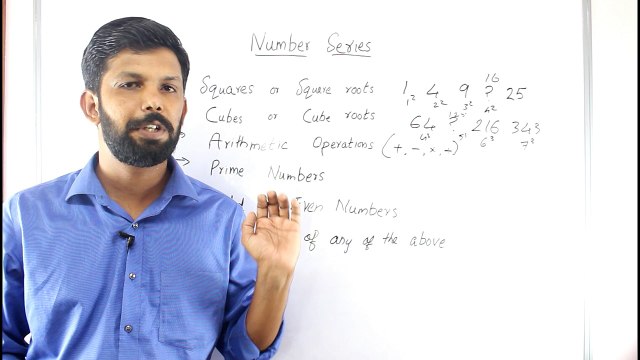 Number Series
Squares or Square roots 1 4 9 ? 25
16
1² 2² 3² 4²
Cubes or Cube roots 64 ? 216 343
4³ 5³ 6³ 7³
Arithmetic Operations (+, -, ×, ÷)
→ Prime Numbers
Even Numbers
of any of the above